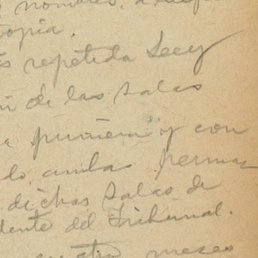 nombres,
topia.
repetida Ley
de las salas
a primera y con
do ambas perma
dichas salas de
dente del Tribunal.
cuatro meses